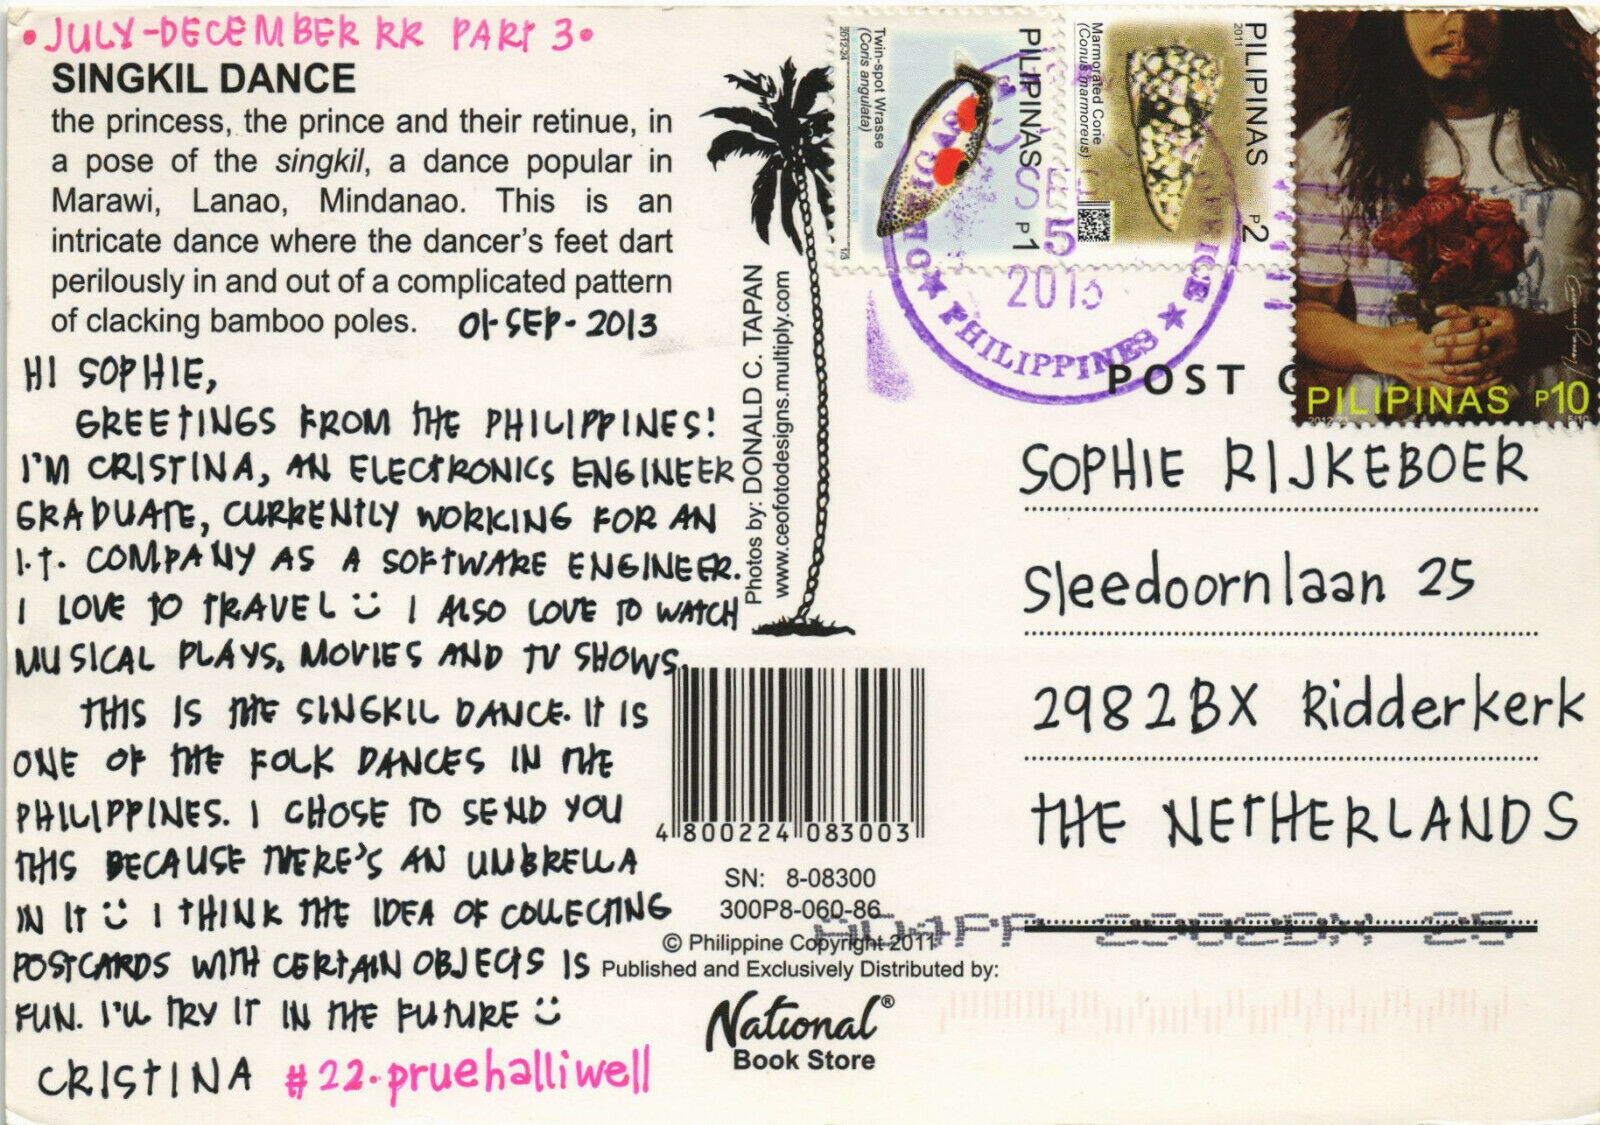 •JULY-DECEMBER RR PART 3•
SINGKIL DANCE
the princess, the prince and their retinue, in
a pose of the singkil, a dance popular in
Marawi, Lanao, Mindanao. This is an
intricate dance where the dancer's feet dart
perilously in and out of a complicated pattern
of clacking bamboo poles. 01-SEP-2013
HI SOPHIE,
GREETINGS FROM THE PHILIPPINES!
I'M CRISTINA, AN ELECTRONICS ENGINEER
GRADUATE, CURRENTLY WORKING FOR AN
I.T. COMPANY AS A SOFTWARE ENGINEER.
I LOVE TO TRAVEL I ALSO LOVE TO WATCH
MUSICAL PLAYS, MOVIES AND TV SHOWS.
THIS IS THE SINGKIL DANCE. IT IS
ONE OF THE FOLK DANCES IN THE
PHILIPPINES. I CHOSE TO SEND YOU
THIS BECAUSE THERE'S AN UMBRELLA
IN IT I THINK THE IDEA OF COLLECTING
POSTCARDS WITH CERTAIN OBJECTS IS
FUN. I'LL TRY IT IN THE FUTURE
CRISTINA #22.pruehalliwell
Photos by: DONALD C. TAPAN
www.ceofotodesigns.multiply.com
4 800224 083003
SN: 8-08300
300P8-060-86
© Philippine Copyright 2011
Published and Exclusively Distributed by:
National®
Book Store
Twin-spot Wrasse
(Coris angulata)
2012-24
PILIPINAS
P1
Marmorated Cone
(Conus marmoreus)
2011
PILIPINAS
P2
PILIPINAS P10
5
2013
PHILIPPINES
POST C
SOPHIE RIJKEBOER
Sleedoornlaan 25
2982BX Ridderkerk
THE NETHERLANDS